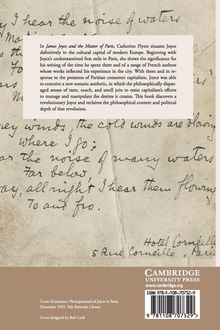 I hear the noise of waters
In James Joyce and the Matter of Paris, Catherine Flynn situates Joyce
definitively in the cultural capital of modern Europe. Beginning with
Joyce's underexamined first exile in Paris, she shows the significance for
his writing of the time he spent there and of a range of French authors
whose works inflected his experience in the city. With them and in re-
sponse to the pressures of Parisian consumer capitalism, Joyce was able
to conceive a new somatic aesthetic, in which the philosophically dispar-
aged senses of taste, touch, and smell join to resist capitalism's efforts
to manage and manipulate the desires it creates. This book discovers a
revolutionary Joyce and reclaims the philosophical content and political
depth of that revolution.
winds, the cold winds are
Where I go;
hear the noise of many waters
Far below,
day, all night I hear them flowing
To and fro.
Hotel Corneille
5 Rue Corneille, Paris
Cover illustration: Photopostcard of Joyce in Paris,
December 1902. Yale Beinecke Library
Cover designed by Rob Lock
CAMBRIDGE
UNIVERSITY PRESS
www.cambridge.org
ISBN 978-1-108-70732-9
9 781108 707329